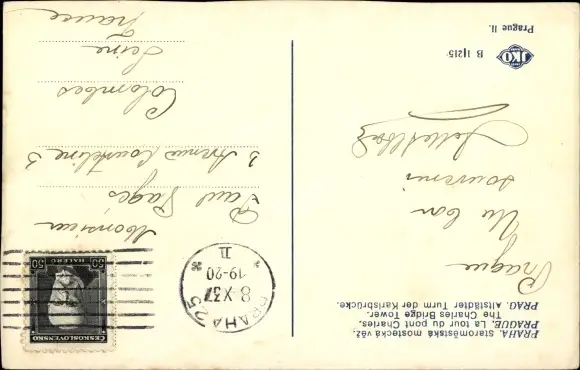 PRAHA. staroměstská mostecká věž.
PRAGUE. La tour du pont Charles.
The Charles Bridge Tower.
PRAG. Altstädter Turm der Karlsbrücke.
Prague
Un bon
souvenir
B 11215
JKO
Prague II.
PRAHA 25
8 X 37
19-20
II
ČESKOSLOVENSKO
50 HALÉŘŮ 50
Monsieur
Paul Pages
3 Avenue Courteline 3
Colombes
Seine
France